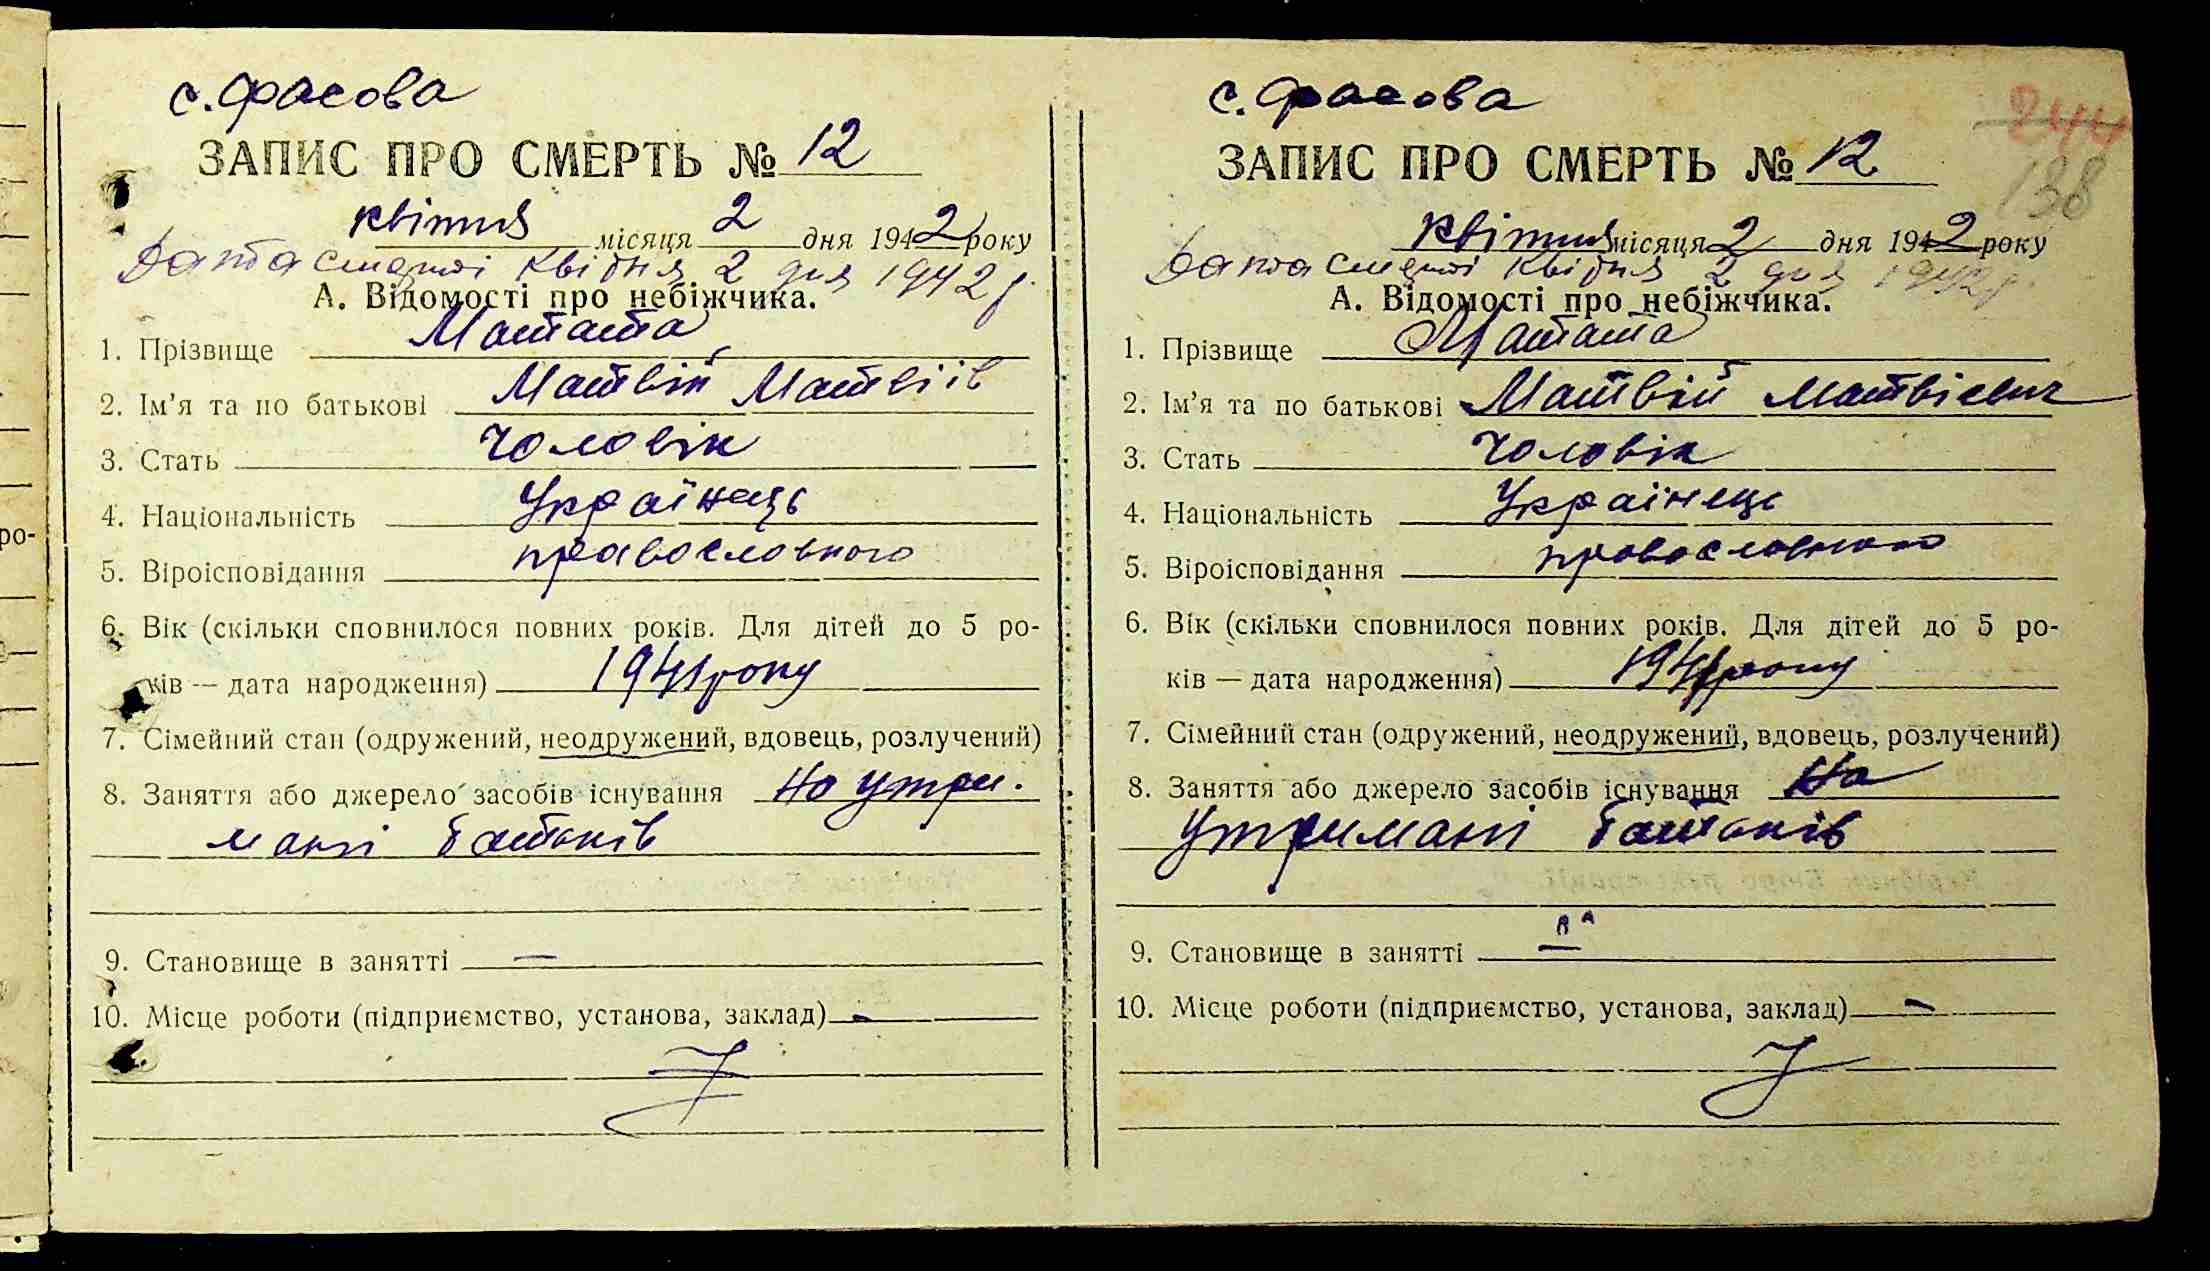 ро-
с. Фасова
ЗАПИС ПРО СМЕРТЬ № 12
квітня місяця 2 дня 1942 року
Дата смерті квітня 2 дня 1942 р.
А. Відомості про небіжчика.
1. Прізвище
2. Ім'я та по батькові Матвій Матвіів
3. Стать чоловік
4. Національність Українець
5. Віроісповідання православного
6. Вік (скільки сповнилося повних років. Для дітей до 5 ро-
ків — дата народження) 1941 року
7. Сімейний стан (одружений, неодружений, вдовець, розлучений)
8. Заняття або джерело засобів існування на утри-
мані батьків
9. Становище в занятті —
10. Місце роботи (підприємство, установа, заклад) -
с. Фасова
244
ЗАПИС ПРО СМЕРТЬ № 12
138
квітня місяця 2 дня 1942 року
Дата смерті квітня 2 дня 1942 р.
А. Відомості про небіжчика.
1. Прізвище
2. Ім'я та по батькові Матвій Матвієвич
3. Стать чоловік
4. Національність Українець
5. Віроісповідання православного
6. Вік (скільки сповнилося повних років. Для дітей до 5 ро-
ків — дата народження) 1941 року
7. Сімейний стан (одружений, неодружений, вдовець, розлучений)
8. Заняття або джерело засобів існування на
утримані батьків
9. Становище в занятті —
10. Місце роботи (підприємство, установа, заклад) -